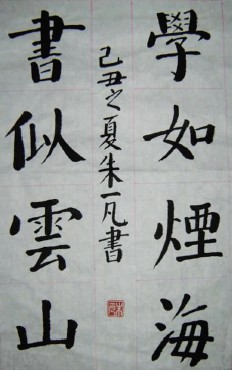 學如煙海
書似雲山
己丑之夏朱一凡書